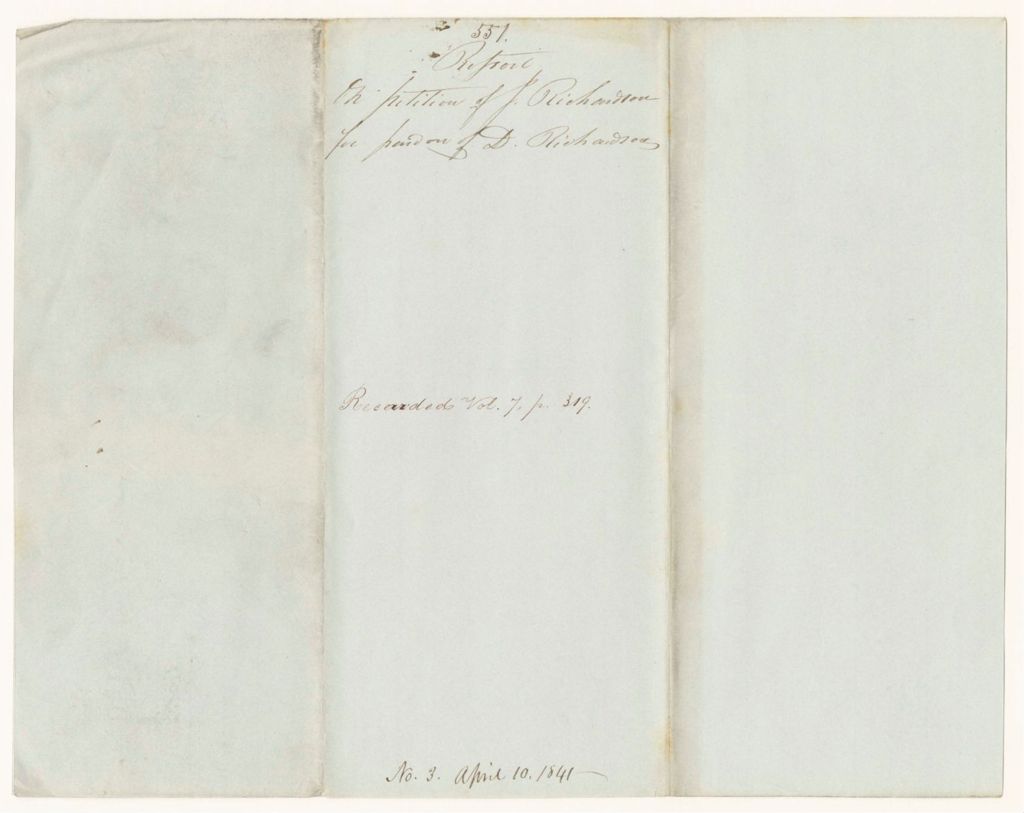 551.
Report
On petition of J. Richardson
for pardon of D. Richardson
Recorded Vol. 7, p. 319.
No. 3. April 10. 1841